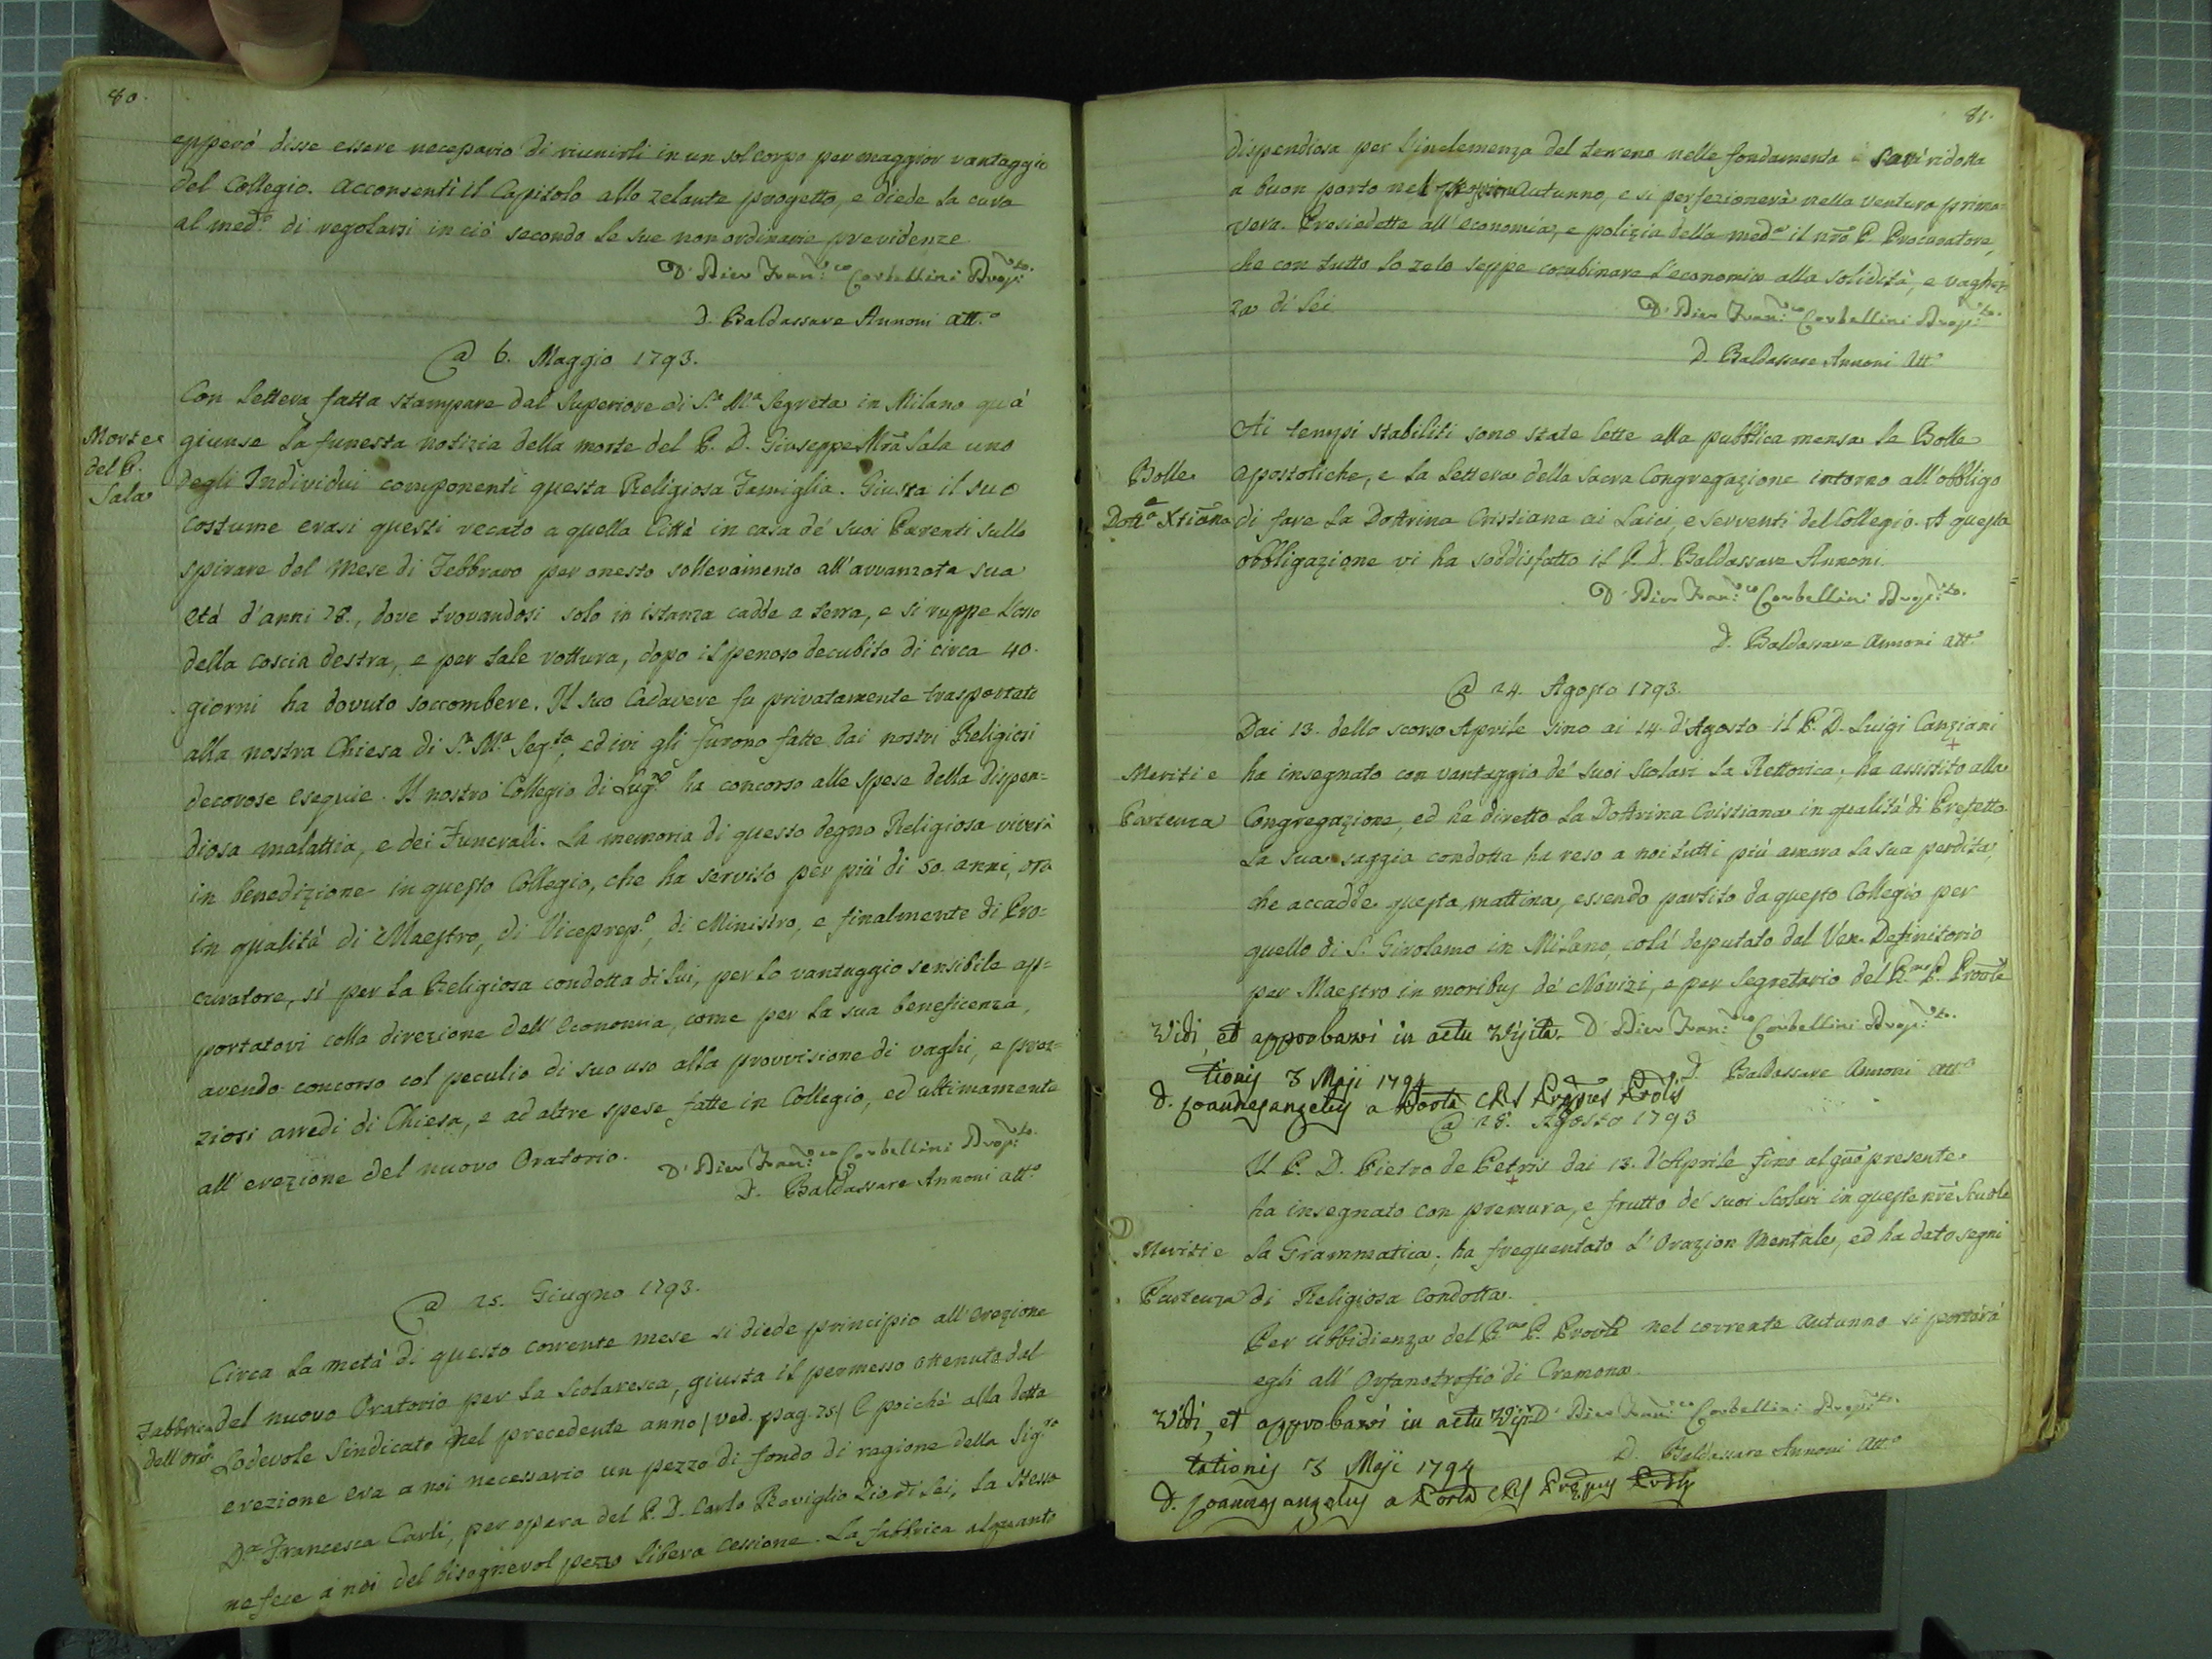 80.
epperò disse essere necessario di riunirli in un sol corpo per maggior vantaggio
del Collegio. Acconsentì il Capitolo allo zelante progetto, e diede la cura
al med.º di regolarsi in ciò secondo le sue non ordinarie previdenze
D. Pier Fran.co Corbellini Prep.to
D. Baldassare Annoni Att.º
A 6. Maggio 1793.
Con lettera fatta stampare dal Superiore di S.a M.a Segreta in Milano quà
Morte giunse la funesta notizia della morte del P. D. Giuseppe Mrã Sala uno
del P. degli Individui componenti questa Religiosa Famiglia. Giusta il suo
Sala
costume erasi questi recato a quella Città in casa de' suoi Parenti sullo
spirare del Mese di Febbraro per onesto sollevamento all'avvanzata sua
età d'anni 78., dove trovandosi solo in istanza cadde a terra, e si ruppe l'osso
della coscia destra, e per tale rottura, dopo il penoso decubito di circa 40.
giorni ha dovuto soccombere. Il suo Cadavere fu privatamente trasportato
alla nostra Chiesa di S.a M.a Seg.ta, ed ivi gli furono fatte dai nostri Religiosi
decorose esequie. Il nostro Collegio di Lug.no ha concorso alle spese della dispen=
diosa malattia, e dei Funerali. La memoria di questo degno Religioso viverà
in benedizione in questo Collegio, che ha servito per più di 50. anni, ora
in qualità di Maestro, di Viceprep.º, di Ministro, e finalmente di Pro=
curatore, sì per la Religiosa condotta di lui, per lo vantaggio sensibile ap=
portatovi colla direzione dell'Economia, come per la sua beneficenza,
avendo concorso col peculio di suo uso alla provvisione di vaghi, e prez=
ziosi arredi di Chiesa, e ad altre spese fatte in Collegio, ed ultimamente
all'erezione del nuovo Oratorio.
D. Pier Fran.co Corbellini Prep.to
D. Baldassare Annoni att.º
A 25. Giugno 1793.
Circa la metà di questo corrente mese si diede principio all'erezione
Fabbrica del nuovo Oratorio per la Scolaresca, giusta il permesso ottenuto dal
dell'Orõ. Lodevole Sindicato nel precedente anno / ved. pag. 75 / E poichè alla detta
erezione era a noi necessario un pezzo di fondo di ragione della Sig.ra
D.a Francesca Carli, per opera del P. D. Carlo Roviglio Zio di lei, la stessa
ne fece a noi del bisognevol pezzo libera cessione. La fabbrica alquanto
81.
dispendiosa per l'inclemenza del terreno nelle fondamenta è ridotta
a buon porto nel Autunno, e si perfezionerà nella ventura prima
vera. Presiedette all'economia, e polizia della med.a il nrõ P. Procuratore,
che con tutto lo zelo seppe combinare l'economia alla solidità, e vaghez
za di lei
D. Pier Fran.co Corbellini Prep.to
D. Baldassare Annoni Att.º
Ai tempi stabiliti sono state lette alla pubblica mensa le Bolle
Bolle Apostoliche, e la lettera della Sacra Congregazione intorno all'obbligo
e
Dott.a Xtiãna di fare la Dottrina Cristiana ai Laici, e serventi del Collegio. A questa
obbligazione vi ha soddisfatto il P. D. Baldassare Annoni.
D. Pier Fran.co Corbellini Prep.to
D. Baldassare Annoni att.º
A 24. Agosto 1793.
Dai 13. dello scorso Aprile sino ai 14. d'Agosto il P. D. Luigi Canziani
Meriti e ha insegnato con vantaggio de' suoi Scolari la Rettorica; ha assistito alla
Partenza Congregazione, ed ha diretto la Dottrina Cristiana in qualità di Prefetto
La sua saggia condotta ha reso a noi tutti più amara la sua perdita,
che accadde questa mattina, essendo partito da questo Collegio per
quello di S. Girolamo in Milano, colà deputato dal Ven. Definitorio
per Maestro in moribus de' Novizi, e per Segretario del R.mo P. Provle
Vidi, et approbavi in actu Visita- D. Pier Fran.co Corbellini Prep.to
tionis 3 Maji 1794 D. Baldassare Annoni att.º
D. Joannes angelus a Porta CRS
A 28. Agosto 1793
Il P. D. Pietro de Petris dai 13. d'Aprile fino al gnõ presente
ha insegnato con premura, e frutto de' suoi Scolari in queste nrẽ Scuole
Meriti e la Grammatica; ha frequentato l'Orazion Mentale, ed ha dato segni
Partenza di Religiosa Condotta.
Per Ubbidienza del R.mo P. Provle nel corrente Autunno si porterà
egli all'Orfanotrofio di Cremona.
Vidi, et approbavi in actu Visi- D. Pier Fran.co Corbellini Prep.to
tationis 3 Maji 1794 D. Baldassare Annoni Att.º
D. Joannes angelus a Porta CRS